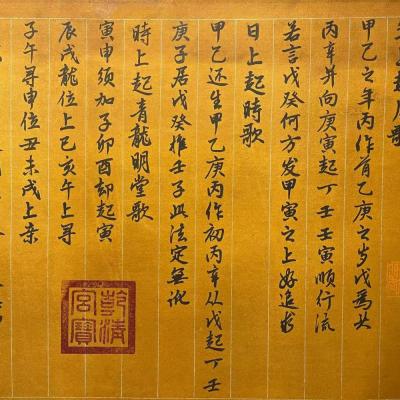 起月歌
甲乙之年丙作首乙庚之岁戊為头
丙辛并向庚寅起丁壬壬寅順行流
若言戊癸何方发甲寅之上好追求
日上起時歌
甲乙还生甲乙庚丙作初丙辛从戊起丁壬
庚子居戊癸推壬子此法定無訛
時上起青龍明堂歌
寅申须加子卯酉却起寅
辰戌龍位上巳亥午上寻
子午寻申位丑未戌上亲
乾清宮寶